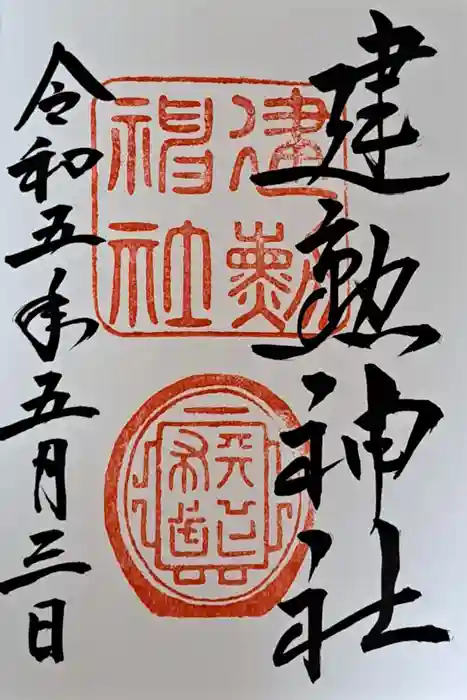 建勲神社
建勲
神社
令和五年五月三日